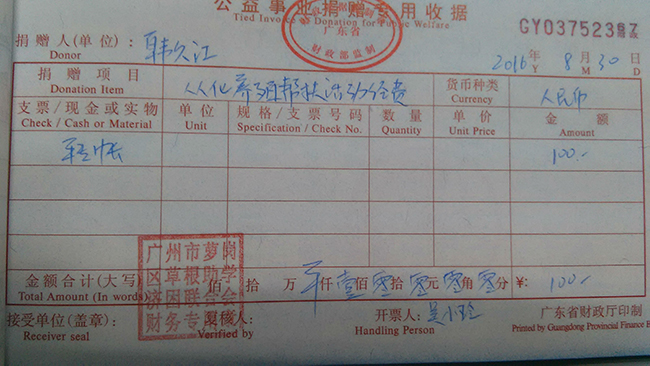 公益事业捐赠专用收据
Tied Invoice of Donation for Public Welfare
广东省
财政部监制
GY03752387
捐赠人(单位)：韩久江
Donor
2016年 8月 30日
Y M D
捐赠项目 从化养殖帮扶活动经费 货币种类 人民币
Donation Item Currency
支票/现金或实物 单位 规格/支票号码 数量 单价 金额
Check / Cash or Material Unit Specification / Check No. Quantity Unit Price Amount
转帐 100.-
广州市萝岗
区草根助学
济困联合会
财务专用章
金额合计(大写) 佰 拾 万 仟壹佰零拾零元零角零分 ¥: 100.-
Total Amount (In words)
接受单位(盖章)： 复核人： 开票人：吴小玲 广东省财政厅印制
Receiver seal Verified by Handling Person Printed by Guangdong Provincial Finance